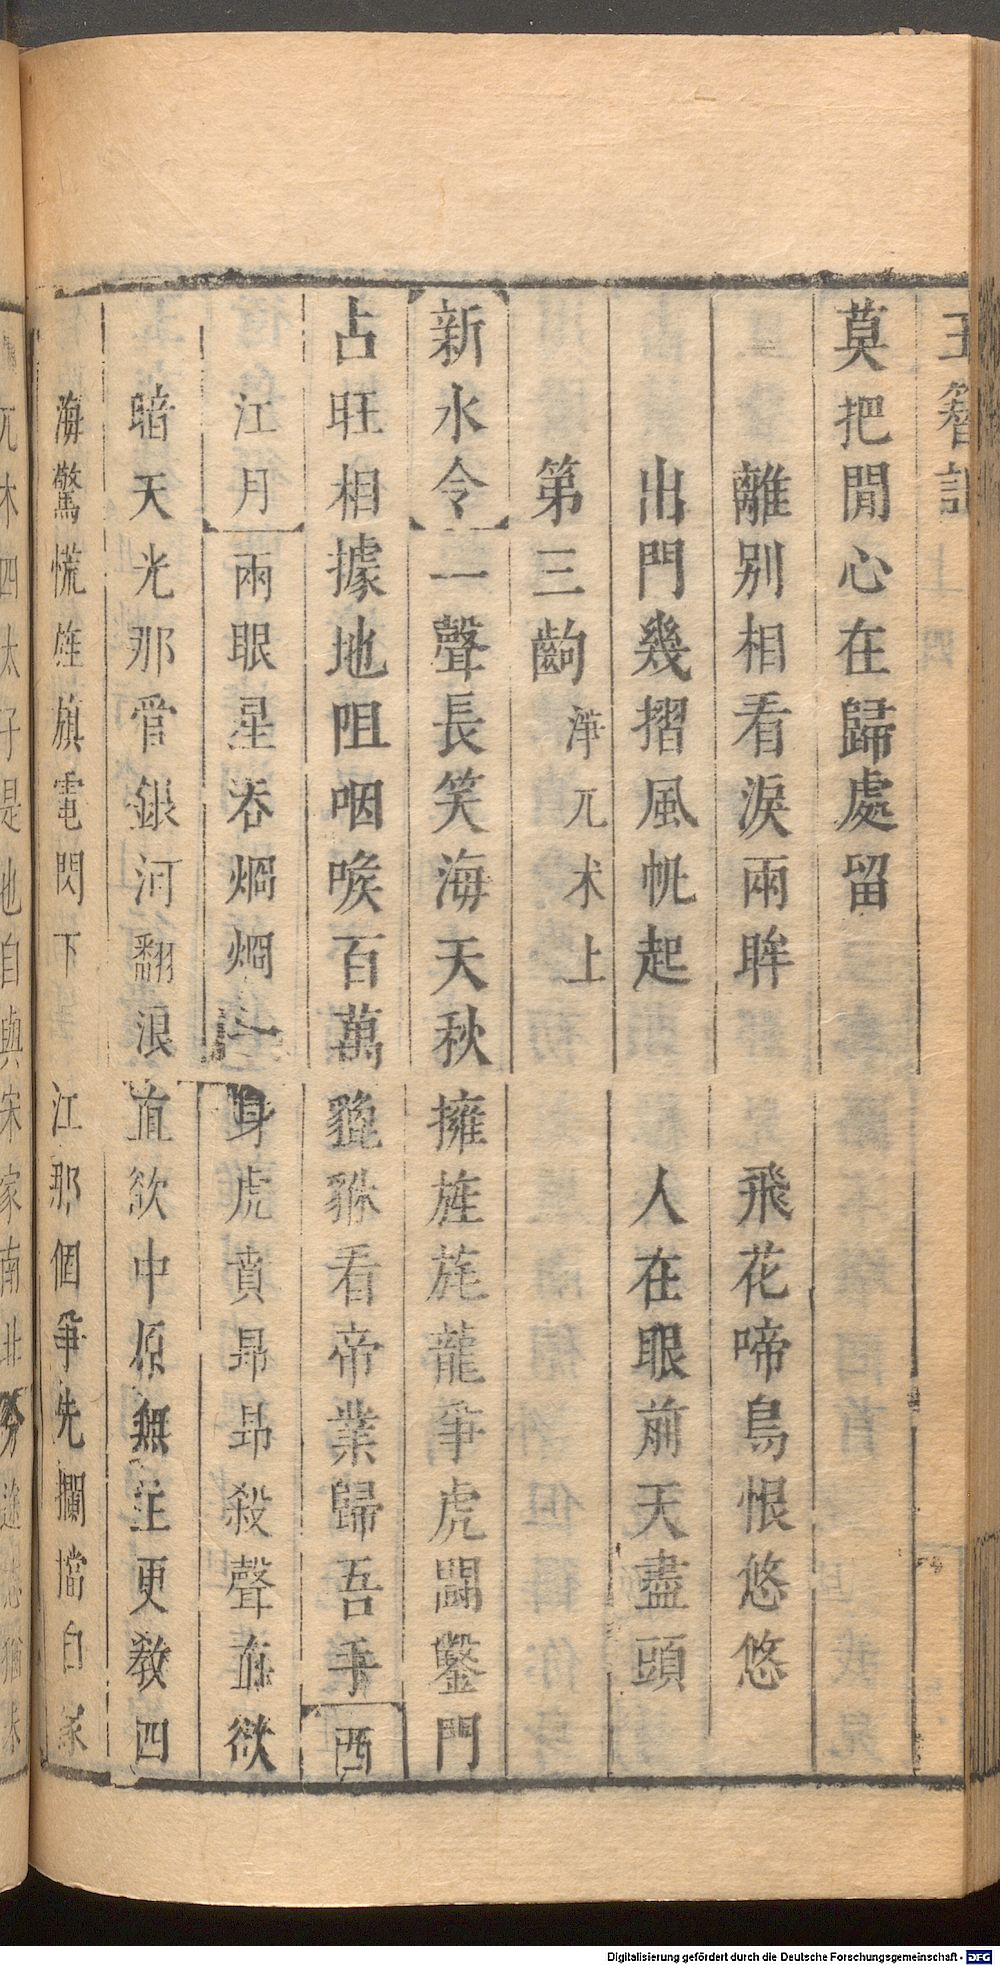 莫把閒心在歸處留
離別相看淚兩眸　飛花啼鳥恨悠悠
出門幾摺風帆起　人在眼前天盡頭
第三齣　淨兀朮上
新水令一聲長笑海天秋擁旌旄龍爭虎鬬鑿門
占旺相據地阻咽喉百萬貔貅看帝業歸吾手西
江月兩眼星吞烱烱一身虎賁昻昻殺聲
暗天光那管銀河翻浪直欲中原無主更教四
海驚慌旌旗電閃下江那個爭先攔擋自家
Digitalisierung gefördert durch die Deutsche Forschungsgemeinschaft - DFG